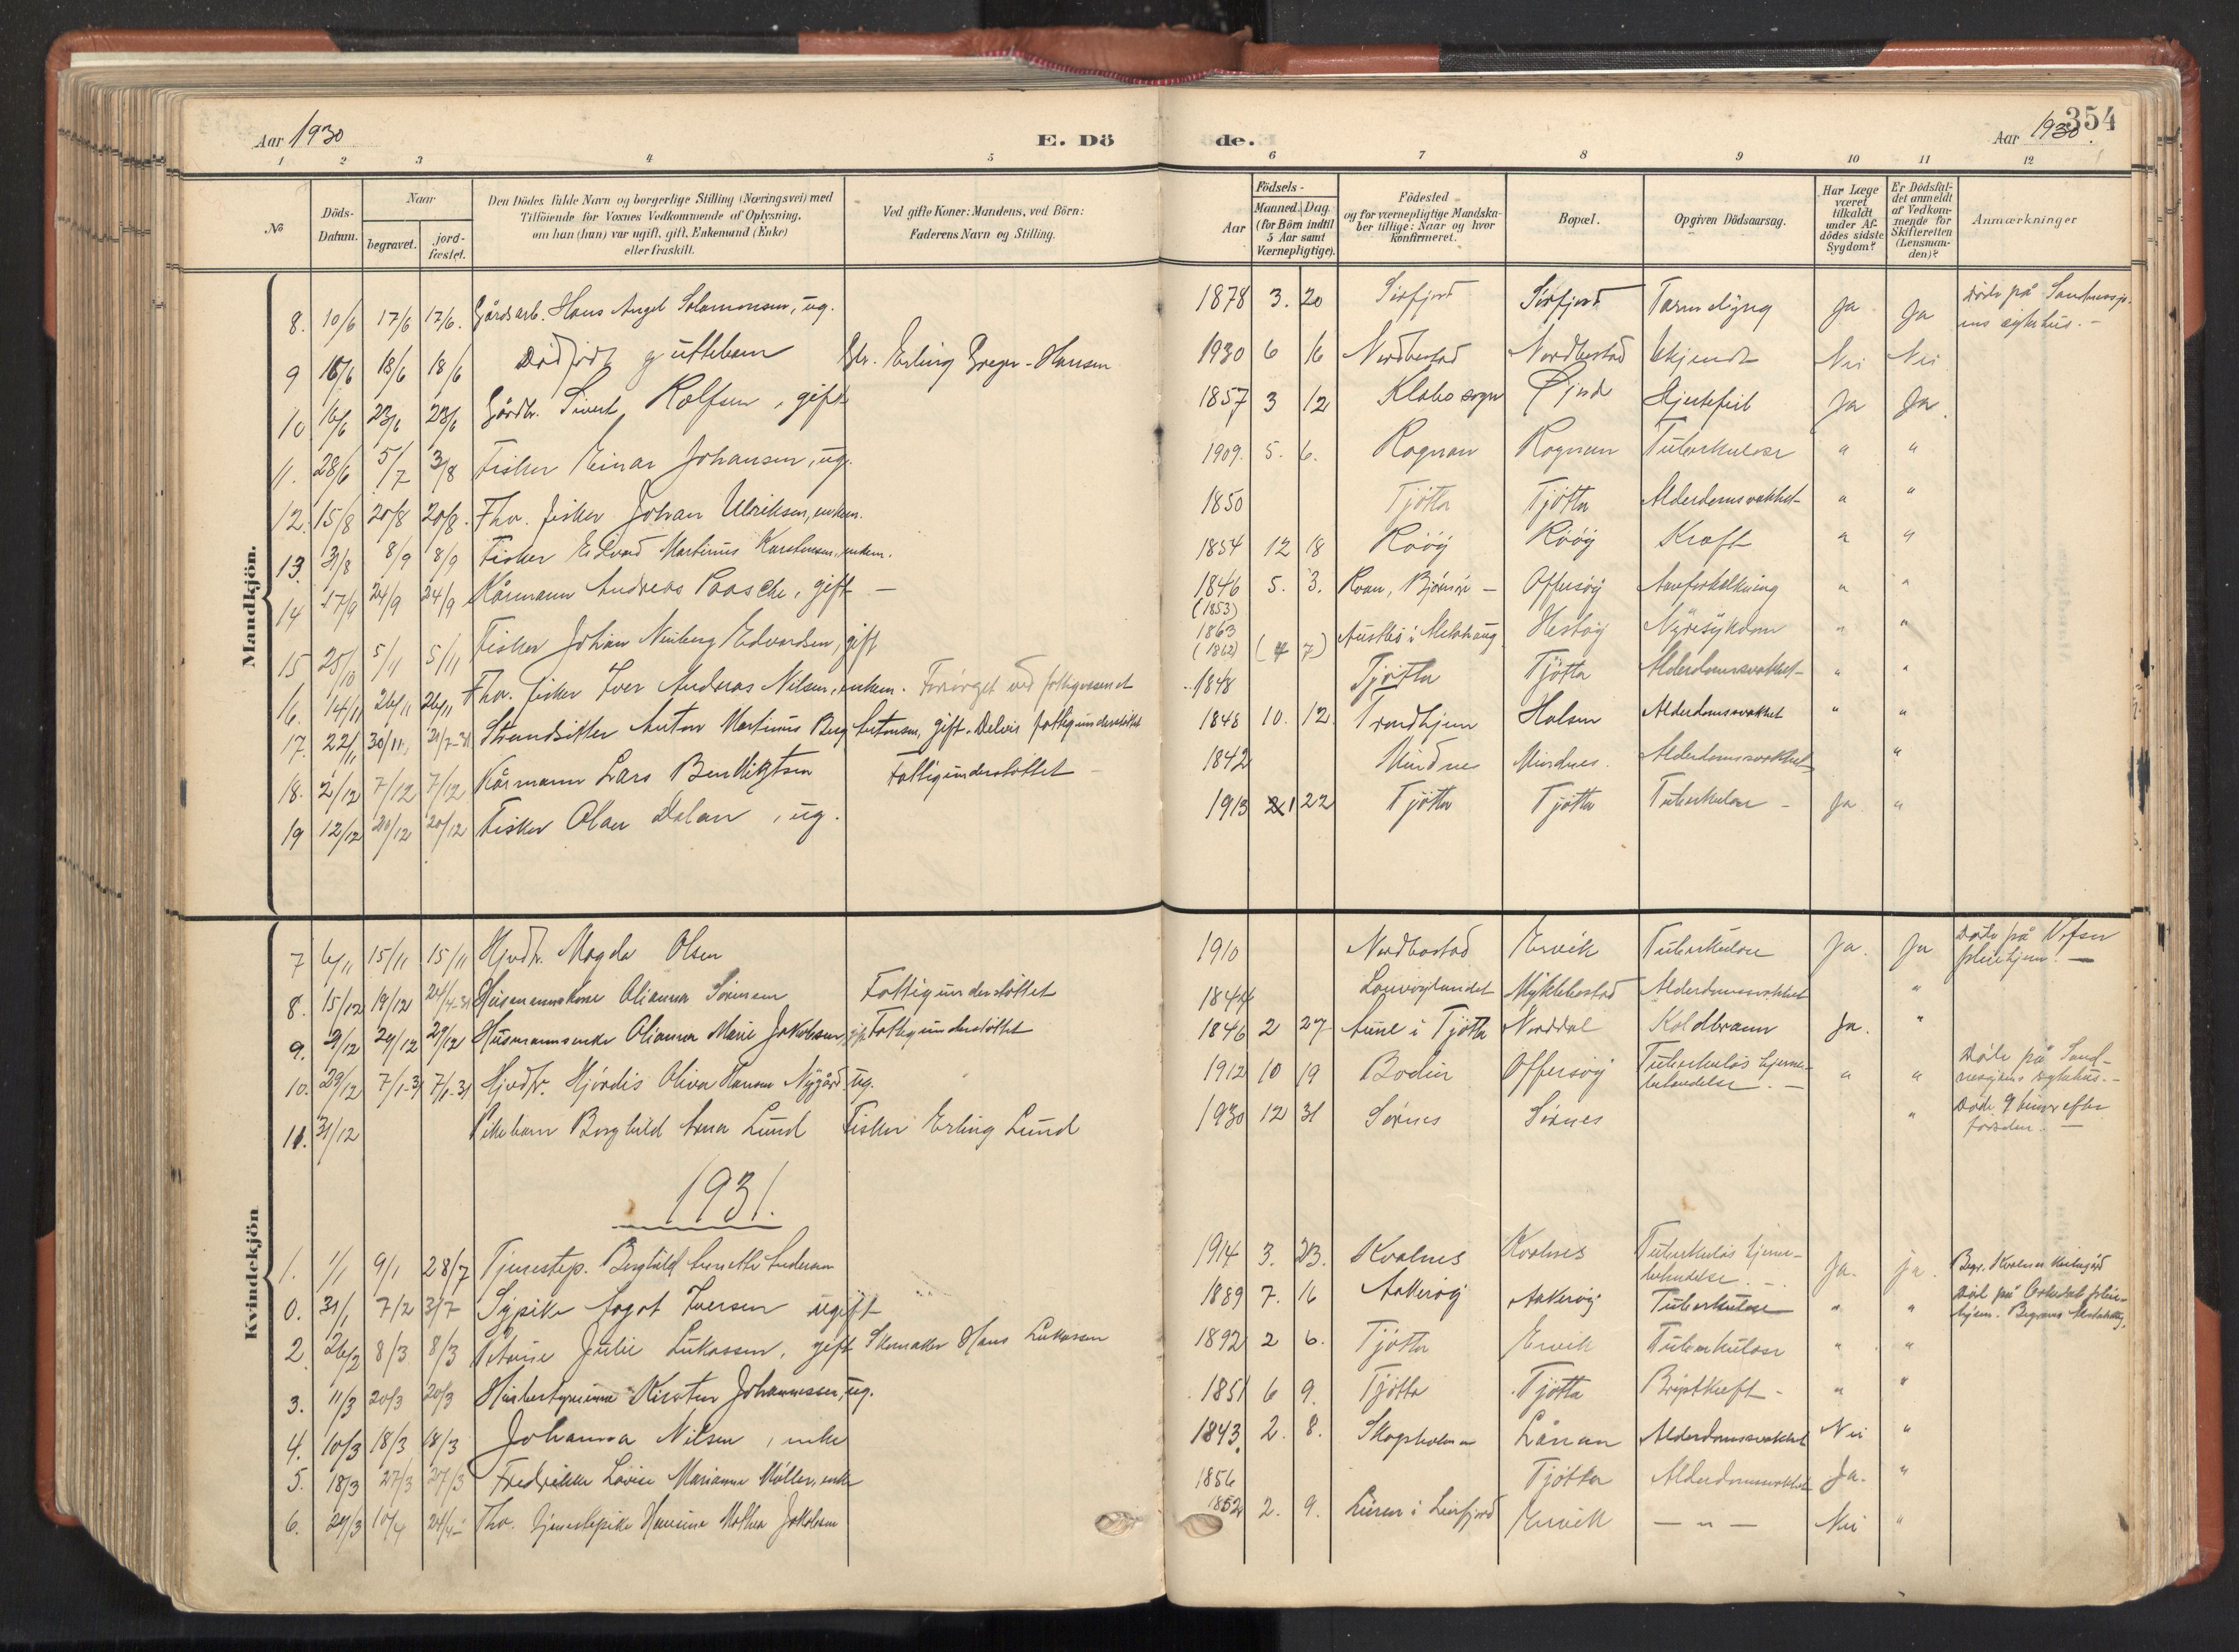 354
Aar 1930
E. Dö
de.
Aar 1930.
1 2 3 4 5 6 7 8 9 10 11 12
No
Döds-
Datum.
Naar
begravet.
jord-
fæstet.
Den Dödes fulde Navn og borgerlige Stilling (Næringsvei) med
Tilföiende for Voxnes Vedkommende af Oplysning,
om han (hun) var ugift, gift, Enkemand (Enke)
eller fraskilt.
Ved gifte Koner: Mandens, ved Börn:
Faderens Navn og Stilling.
Födsels-
Aar
Maaned. Dag.
(for Börn indtil
5 Aar samt
Værnepligtige).
Födested
og for værnepligtige Mandska-
ber tillige: Naar og hvor
konfirmeret.
Bopæl.
Opgiven Dödsaarsag.
Har Læge
været
tilkaldt
under Af-
dödes sidste
Sygdom?
Er Dödsfal-
det anmeldt
af Vedkom-
mende for
Skifteretten
(Lensman-
den)?
Anmærkninger
Mandkjön.
8. 10/6 17/6 17/6. Gårdsarb. Hans Angel Salamonsen, ug. 1878 3. 20 Sörfjord Sörfjord Tarmslyng Ja Ja Döde på Sandnessjö-
ens sykehus. -
9 16/6 18/6 18/6 Dödfödt guttebarn Erling Greger-Hansen 1930 6 16 Nordbostad Nordbostad Ukjendt Nei Nei
10 16/6 23/6 23/6 Gårdbr. Sivert Rolfsen, gift 1857 3 12 Klæbo sogn Hjertefeil Ja Ja.
11. 28/6 5/7 3/8 Fisker Einar Johansen, ug. 1909. 5. 6. Rognan Rognan Tuberkulose " "
12. 15/8 20/8 20/8. Fhv. fisker Johan Ulriksen, enkem. 1850 Tjötta Tjötta Alderdomssvakhet " "
13. 31/8 8/9 8/9 Fisker Edvard Martinus Karstensen, enkem. 1854 12 18 Röög Röög Kræft " "
14 17/9 24/9 24/9 Kårmann Andreas Paasche, gift - 1846 5. 3. Roan, Björnör - Offersöy Aareforkalkning " "
(1853)
15 25/10 5/11 5/11 Fisker Johan Edvardsen, gift 1863 (4 7) i Alstahaug Hestöy Nyresykdom " "
(1862)
16. 14/11 26/11 26/11 Fhv. fisker Iver Andreas Nilsen, enkem. Forsörget ved fattigvesenet 1848 Tjötta Tjötta Alderdomssvakhet " "
17. 22/11 30/11 31/7-31 Strandsitter Anton Martinus Berg Antonsen, gift. Delvis fattigunderstöttet 1848 10. 12. Trondhjem Holmen Alderdomssvakhet " "
18. 2/12 7/12 7/12 Kårmann Lars Bendigtsen Fattigunderstöttet - 1842 Mindne Mindnes. Alderdomssvakhet "
19 12/12 20/12 20/12 Fisker Olav Dalan, ug. 1913 1 22 Tjötta Tjötta Tuberkulose - Ja "
Kvindekjön
7 6/11 15/11 15/11 Hjvdtr. Magda Olsen 1910 Nordbostad Ervik Tuberkulose Ja. Ja Döde på Vefsn
pleiehjem. -
8. 15/12 19/12 24/4-31 Husmannskone Olianna Sörensen Fattigunderstöttet 1844 Myklebostad Alderdomssvakhet "
9. 9/12 29/12 29/12 Husmannsenke Olianna Marie Jakobsen, Fattigunderstöttet 1846 2 27 Aune i Tjötta Norddal Koldbrann Ja. "
10. 29/12 7/1-31 7/1-31 Hjvdtr. Hjördis Oliva Hansen Nygård, ug. 1912 10 19 Bodin Offersöy Tuberkulös hjerne-
betendelse. - " " Döde på Sand-
nessjöens sykehus. -
11. 31/12 Pikebarn Borghild Anna Lund Fisker Erling Lund 1930 12 31 Sörnes Sörnes " Döde 9 timer efter
födselen. -
1931.
1. 1/1 9/1 28/7 Tjenestep. Borghild Andersen 1914 3. 23. Kvalnes Kvalnes Tuberkulös hjerne-
betendelse. - Ja. Ja. Begr. Kvalnes kirkegård
0. 31/1 7/2 3/7 Sypike Iversen ugift 1889 7. 16 Aakeröy Aakeröy Tuberkulose " " Död på pleie-
hjem. Begraves Alstahaug.
2. 26/2 8/3 8/3 Julie Lukassen, gift Skomaker Hans Lukassen 1892 2 6. Tjötta Ervik Tuberkulose " "
3. 11/3 20/3 20/3 Husbestyrerinne Kirsten Johannessen, ug. 1851 6 9. Tjötta Tjötta Brystkreft - " "
4. 10/3 18/3 18/3 Johanna Nilsen, enke 1843. 2. 8. Skogsholmen Lånan Alderdomssvakhet Nei "
5. 18/3 27/3 27/3 Fredrikke Lovise Marianne Möller, enke 1856 Tjötta Alderdomssvakhet Ja. "
6. 29/3 10/4 24/4 - Fhv. tjenestepike Hansine Mathea Jakobsen 1852 2. 9. i Leirfjord Ervik - " - Nei "